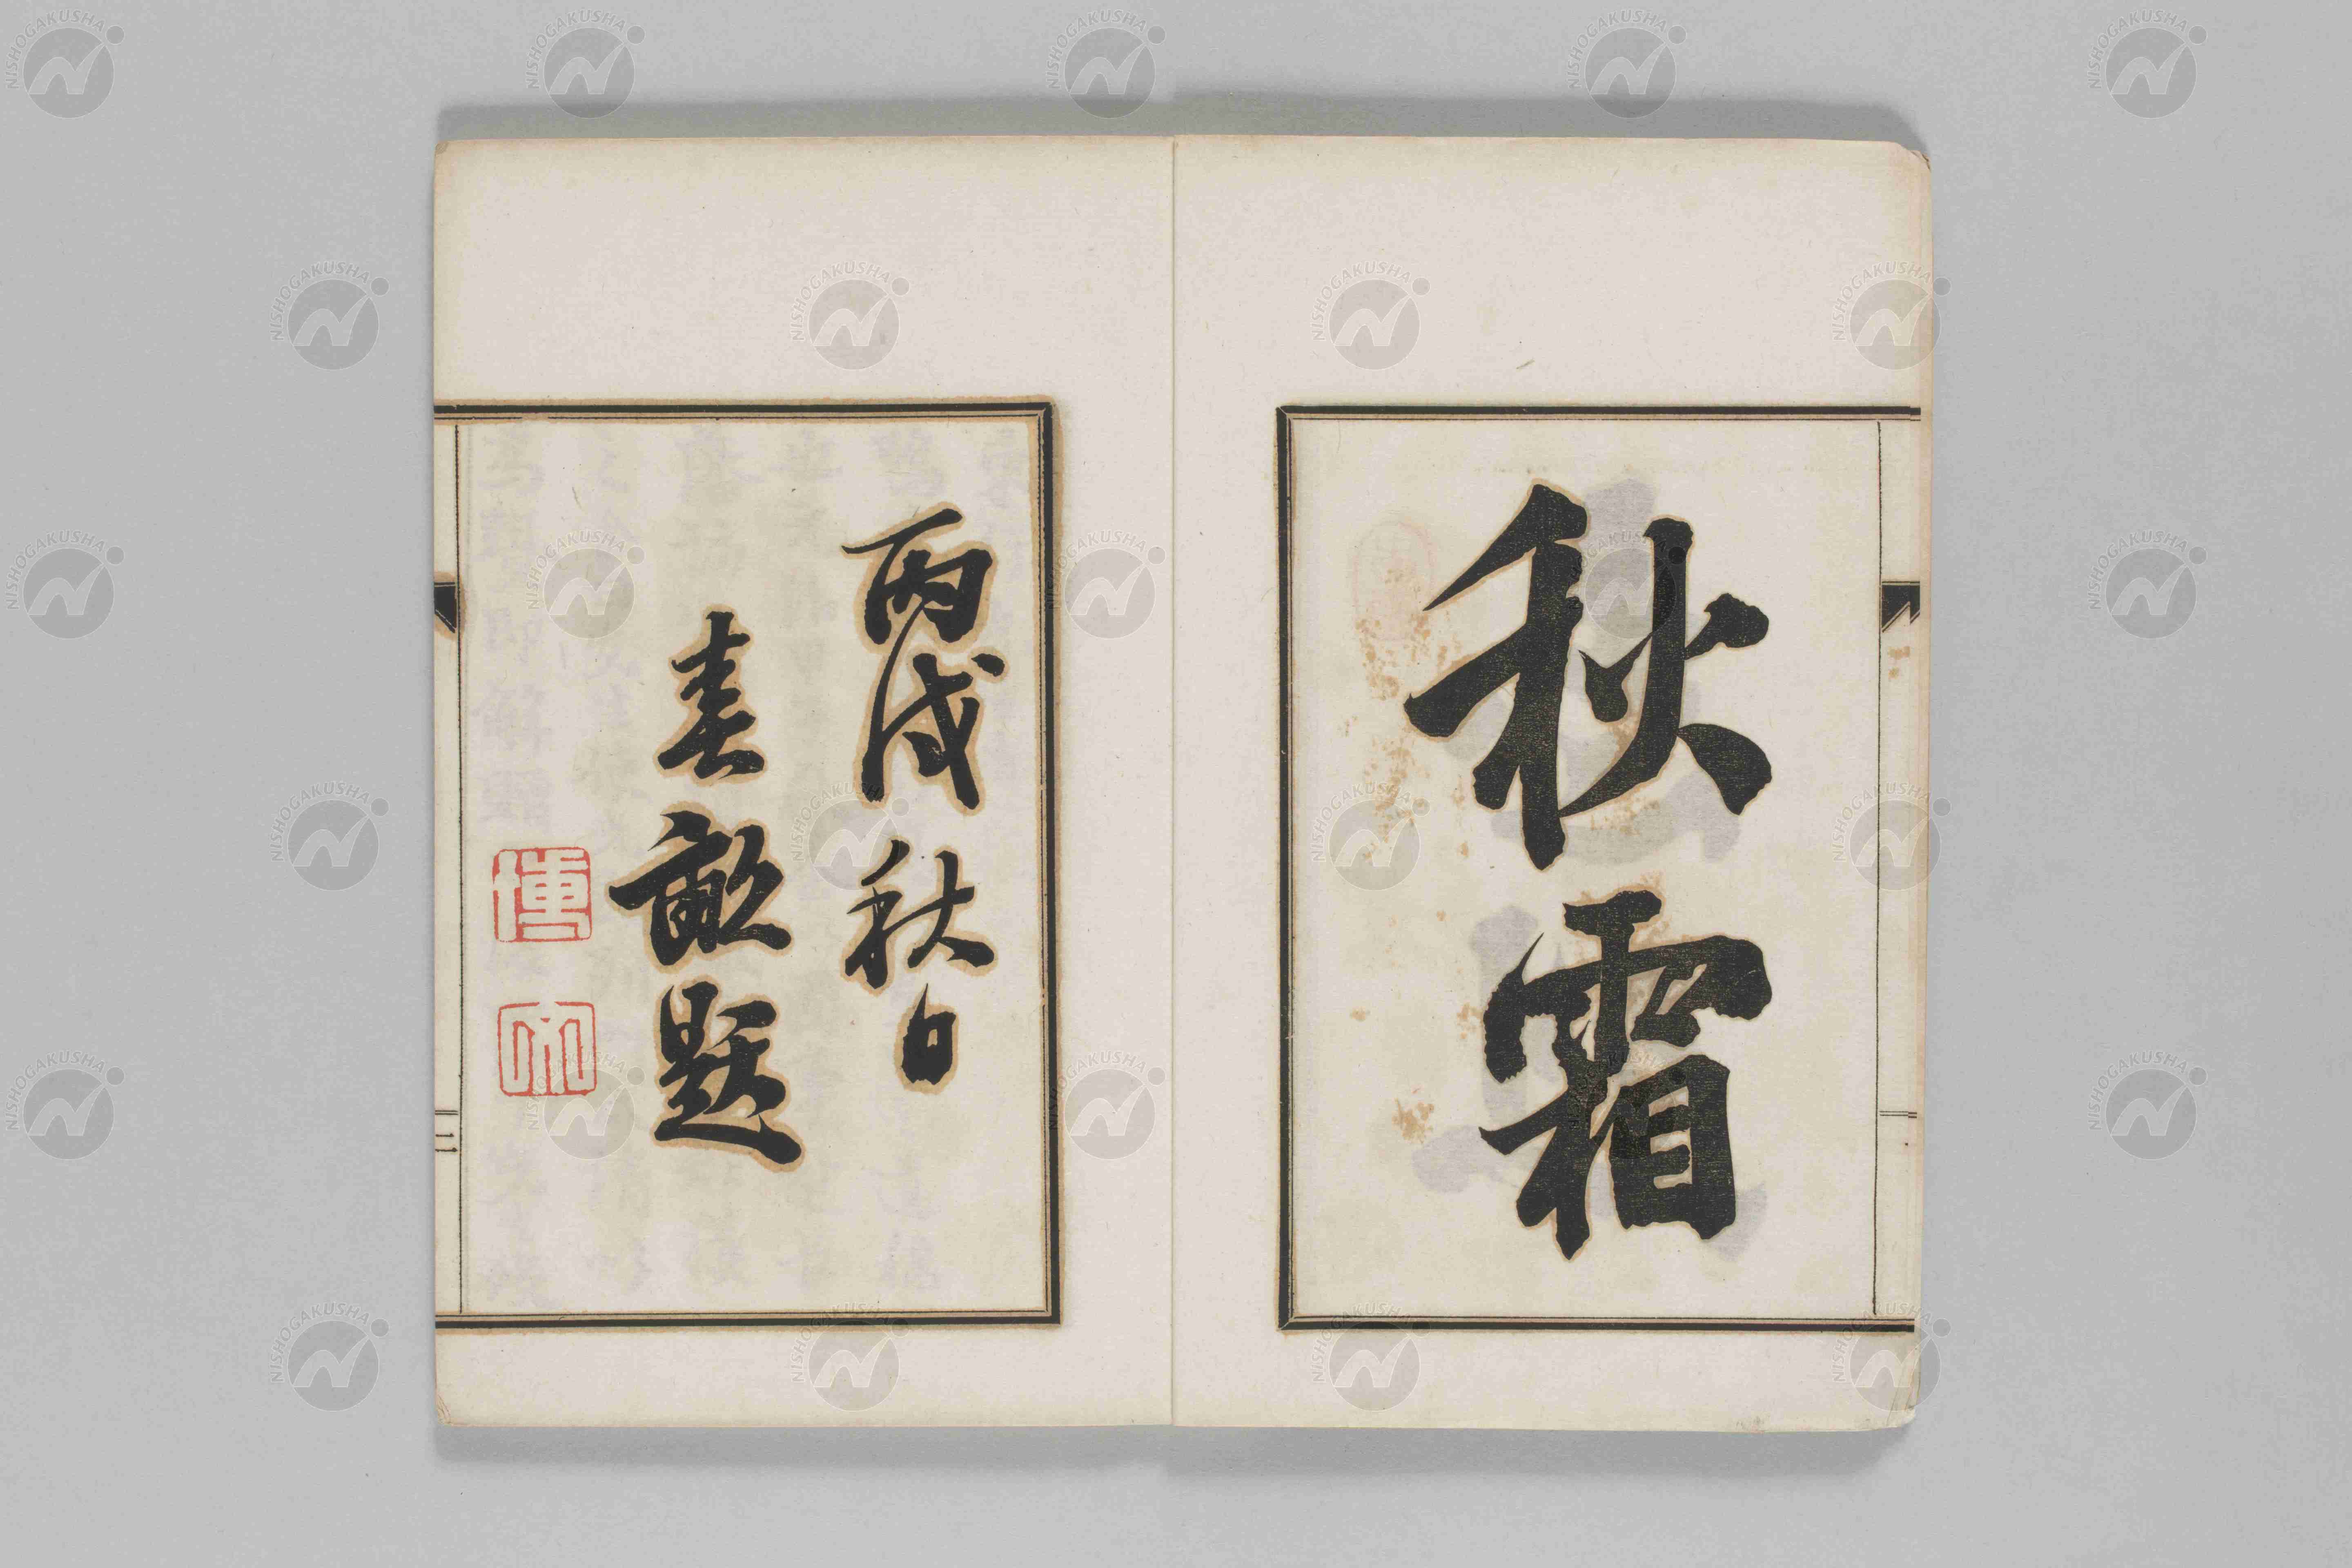 秋霜
丙戌秋日
春畝題
博
文
二
NISHOGAKUSHA